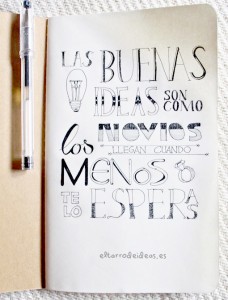 LAS BUENAS
IDEAS SON COMO
los NOVIOS
LLEGAN CUANDO
MENOS
TE LO ESPERAS
eltarrodeideas.es